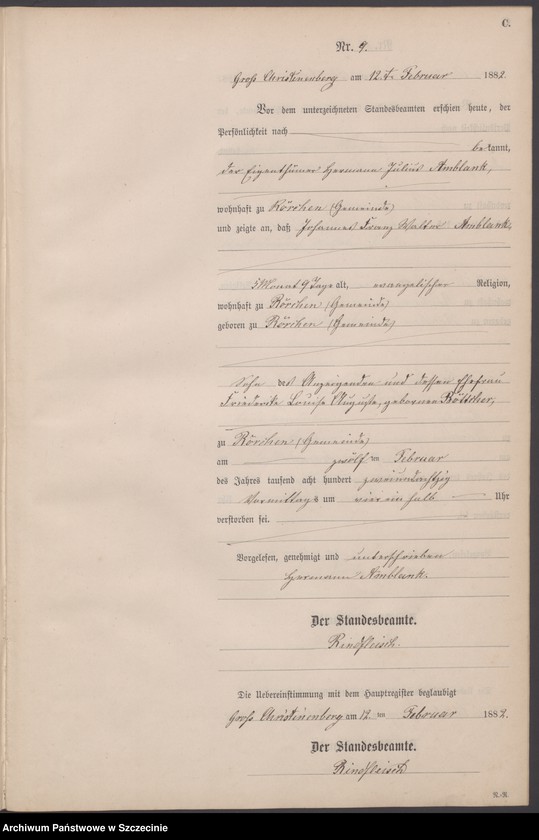 C.
Nr. 9.
Groß Christinenberg am 12. ten Februar 1882.
Vor dem unterzeichneten Standesbeamten erschien heute, der
Persönlichkeit nach
bekannt,
der Eigenthümer Hermann Julius Amblank,
wohnhaft zu Rörchen (Gemeinde)
und zeigte an, daß Johannes Franz Walter Amblank,
5 Monat 9 Tage alt, evangelischer Religion,
wohnhaft zu Rörchen (Gemeinde)
geboren zu Rörchen (Gemeinde)
Sohn des Anzeigenden und dessen Ehefrau
Friederike Louise Auguste, geborenen Böttcher,
zu Rörchen (Gemeinde)
am zwölften Februar
des Jahres tausend acht hundert zweiundachtzig
Vormittags um vier ein halb Uhr
verstorben sei.
Vorgelesen, genehmigt und unterschrieben
Hermann Amblank.
Der Standesbeamte.
Rindfleisch.
Die Uebereinstimmung mit dem Hauptregister beglaubigt
Groß Christinenberg am 12. ten Februar 1882.
Der Standesbeamte.
Rindfleisch
N.-R.
Archiwum Państwowe w Szczecinie